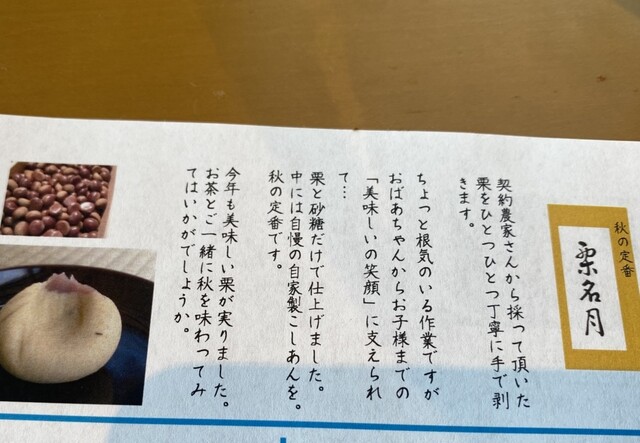 秋の定番
栗名月
契約農家さんから採って頂いた
栗をひとつひとつ丁寧に手で剥
きます。
ちょっと根気のいる作業ですが
おばあちゃんからお子様までの
「美味しいの笑顔」に支えられ
て…
栗と砂糖だけで仕上げました。
中には自慢の自家製こしあんを。
秋の定番です。
今年も美味しい栗が実りました。
お茶とご一緒に秋を味わってみ
てはいかがでしょうか。